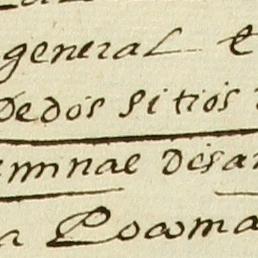 general
Dedos sitios
emnae Disa
a Pocoma